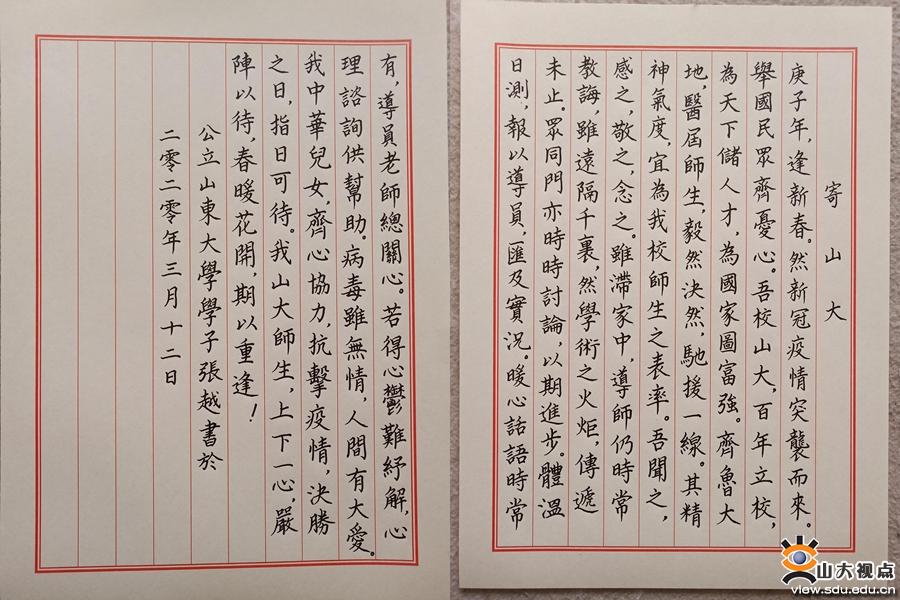 寄山大
庚子年，逢新春。然新冠疫情突襲而來。
舉國民眾齊憂心。吾校山大，百年立校，
為天下儲人才，為國家圖富強。齊魯大
地，醫屆師生，毅然決然，馳援一線。其精
神氣度，宜為我校師生之表率。吾聞之，
感之，敬之，念之。雖滯家中，導師仍時常
教誨，雖遠隔千裏，然學術之火炬，傳遞
未止。眾同門亦時時討論，以期進步。體溫
日測，報以導員，匯及實況。暖心話語時常
有，導員老師總關心。若得心鬱難紓解，心
理諮詢供幫助。病毒雖無情，人間有大愛。
我中華兒女，齊心協力，抗擊疫情，決勝
之日，指日可待。我山大師生，上下一心，嚴
陣以待，春暖花開，期以重逢！
公立山東大學學子張越書於
二零二零年三月十二日
山大视点
www.view.sdu.edu.cn